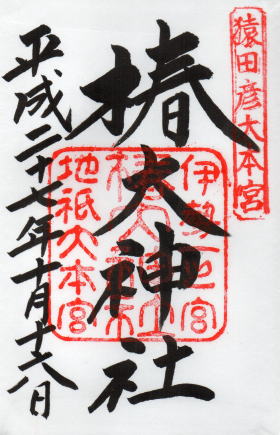 猿田彦大本宮
椿大神社
伊勢一之宮
椿大神社
地祇大本宮
平成二十七年十月十六日